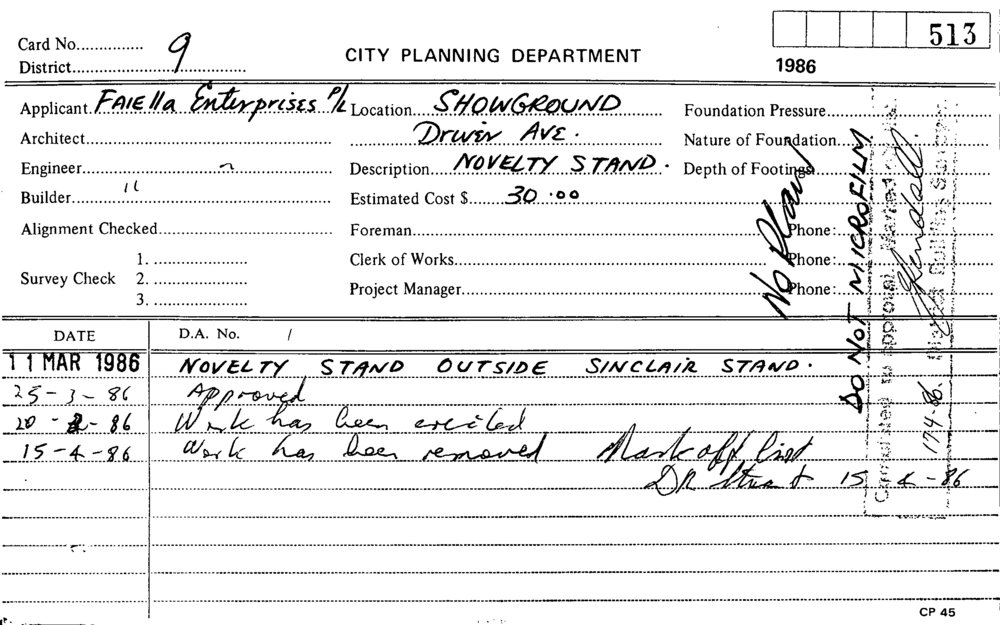 Card No............... 9 513
District.............................................
CITY PLANNING DEPARTMENT
1986
Applicant FAIElla Enterprises P/L Location SHOWGROUND Foundation Pressure
Architect Driver AVE. Nature of Foundation
Engineer ~ Description NOVELTY STAND. Depth of Footings
Builder 11 Estimated Cost $ 30.00
Alignment Checked Foreman Phone:
1. Clerk of Works Phone:
Survey Check 2.
3. Project Manager Phone:
No Plan
DO NOT MICROFILM
Completed to Approval. Marked
Plans
17-4-86.
DATE D.A. No. /
11 MAR 1986 NOVELTY STAND OUTSIDE SINCLAIR STAND.
25-3-86 Approved
20 - -86 Work has been erected
15-4-86 Work has been removed Mark off list
DR Stuart 15 4-86
CP 45